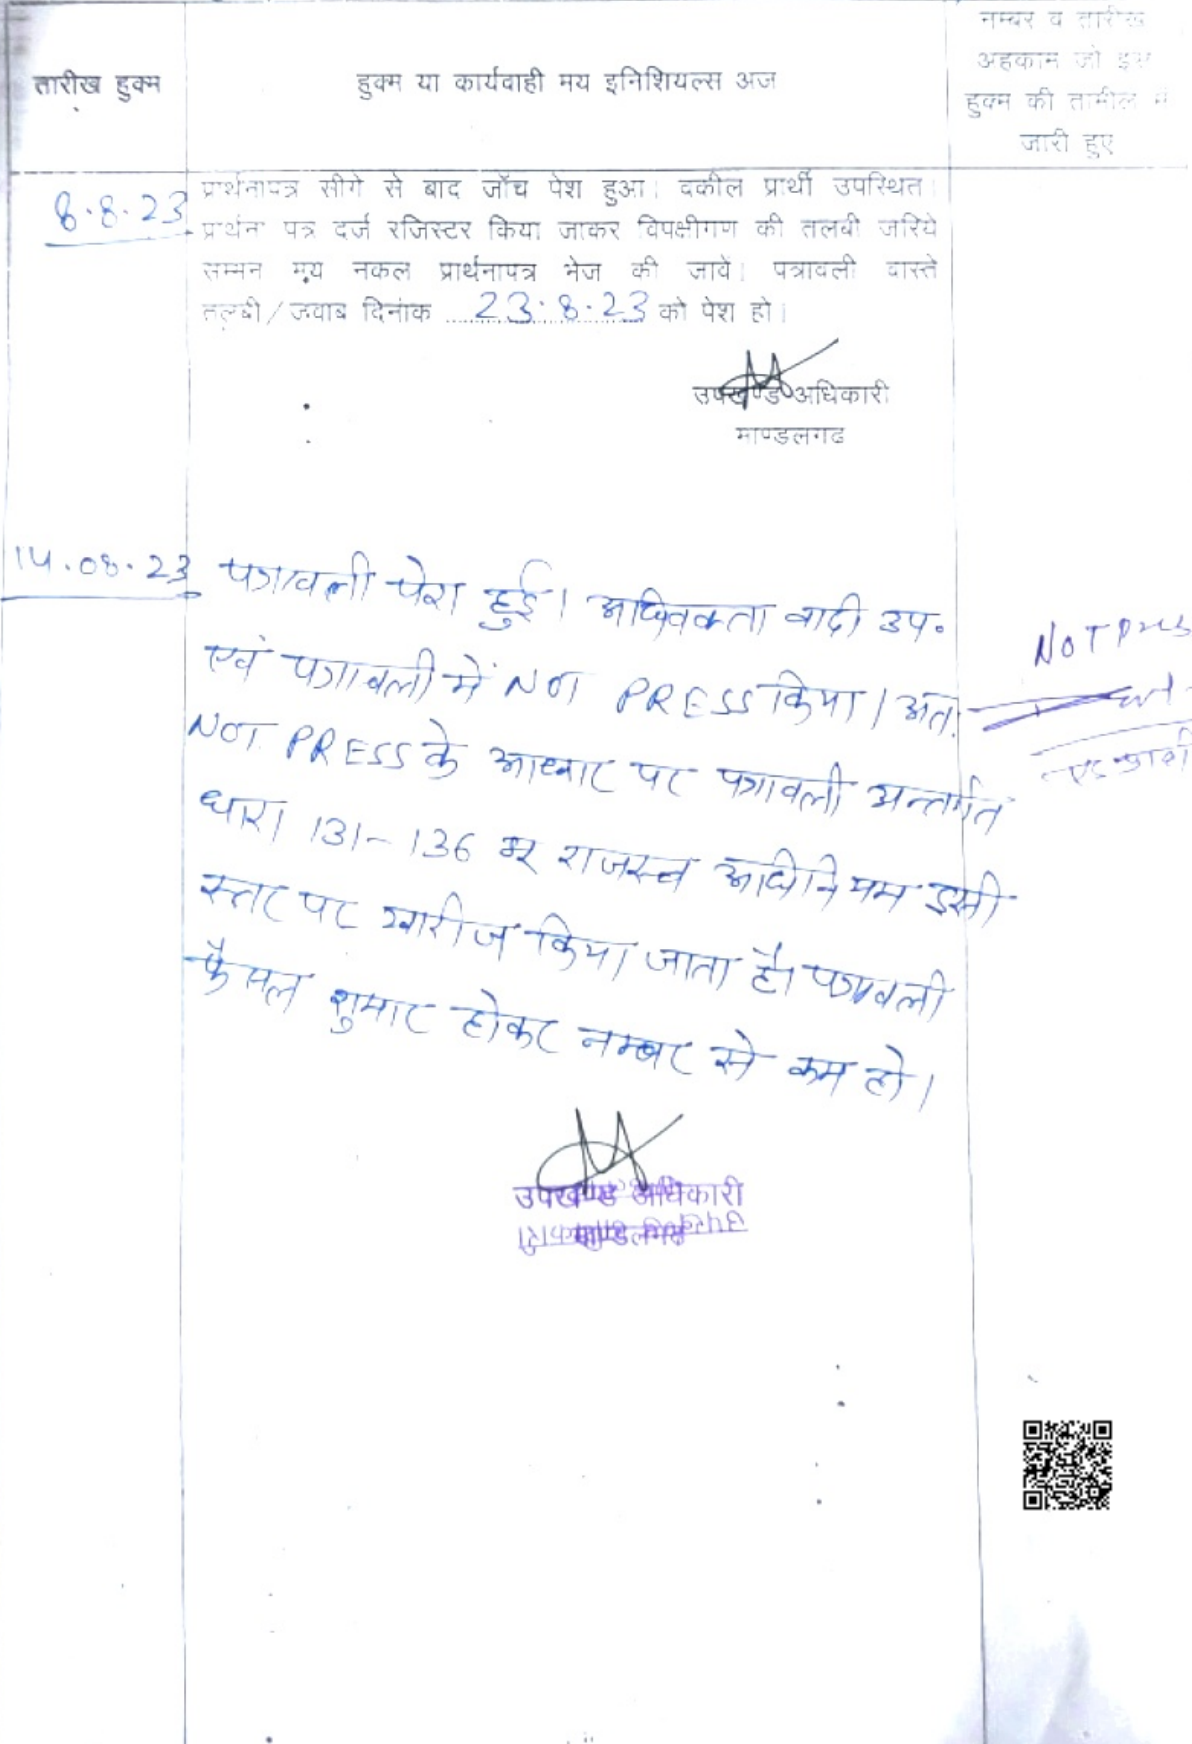 नम्बर व तारीख
अहकाम जो इस
हुक्म की तामील में
जारी हुए
तारीख हुक्म
हुक्म या कार्यवाही मय इनिशियल्स अज
8.8.23
प्रार्थनापत्र सीगे से बाद जाँच पेश हुआ। वकील प्रार्थी उपस्थित।
प्रार्थना पत्र दर्ज रजिस्टर किया जाकर विपक्षीगण की तलबी जरिये
सम्मन मय नकल प्रार्थनापत्र भेज की जावें। पत्रावली वास्ते
तलबी/जवाब दिनांक 23.8.23 को पेश हो।
उपखण्ड अधिकारी
माण्डलगढ
14.08.23 पत्रावली पेश हुई। अधिवक्ता वादी उप.
एवं पत्रावली में NOT PRESS किया। अत:
NOT PRESS के आधार पर पत्रावली अन्तर्गत
धारा 131-136 भू राजस्व अधिनियम इसी
स्तर पर खारीज किया जाता है। पत्रावली
फैसल शुमार होकर नम्बर से कम हो।
NOT Press
उपखण्ड अधिकारी
माण्डलगढ